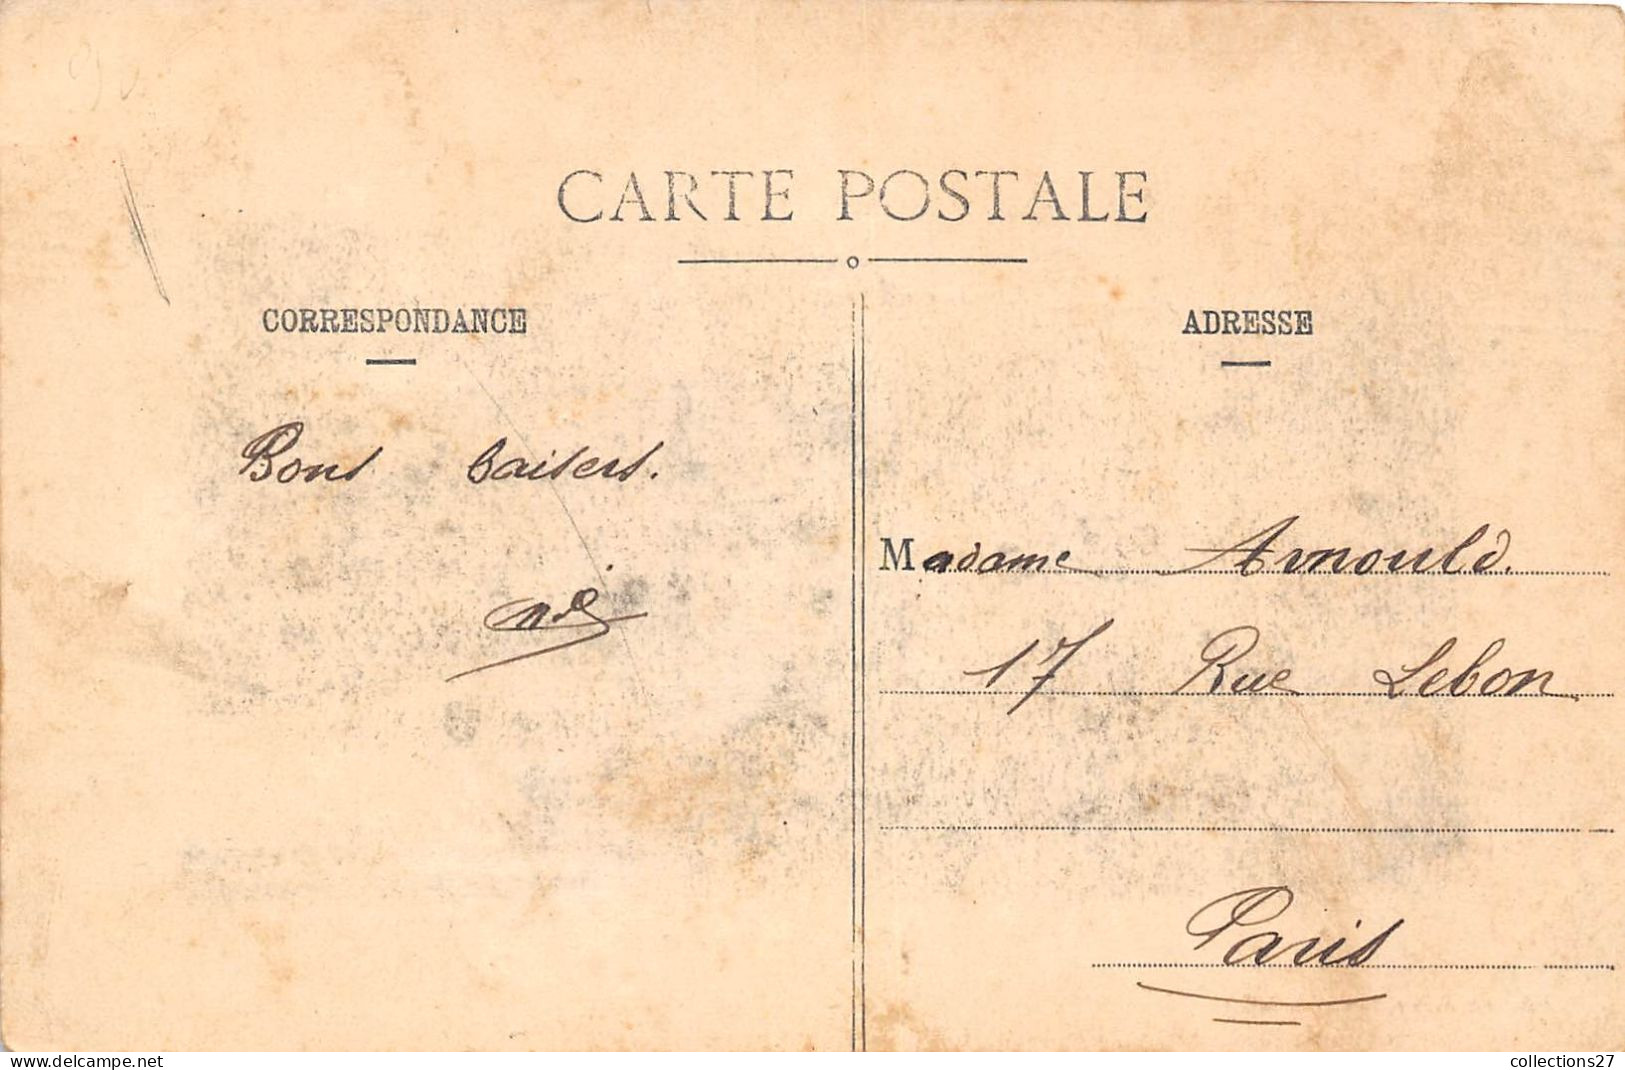 CARTE POSTALE
CORRESPONDANCE
ADRESSE
Bons baisers.
Madame Arnould.
17 Rue Lebon
Paris
https://www.delcampe.net
collections27